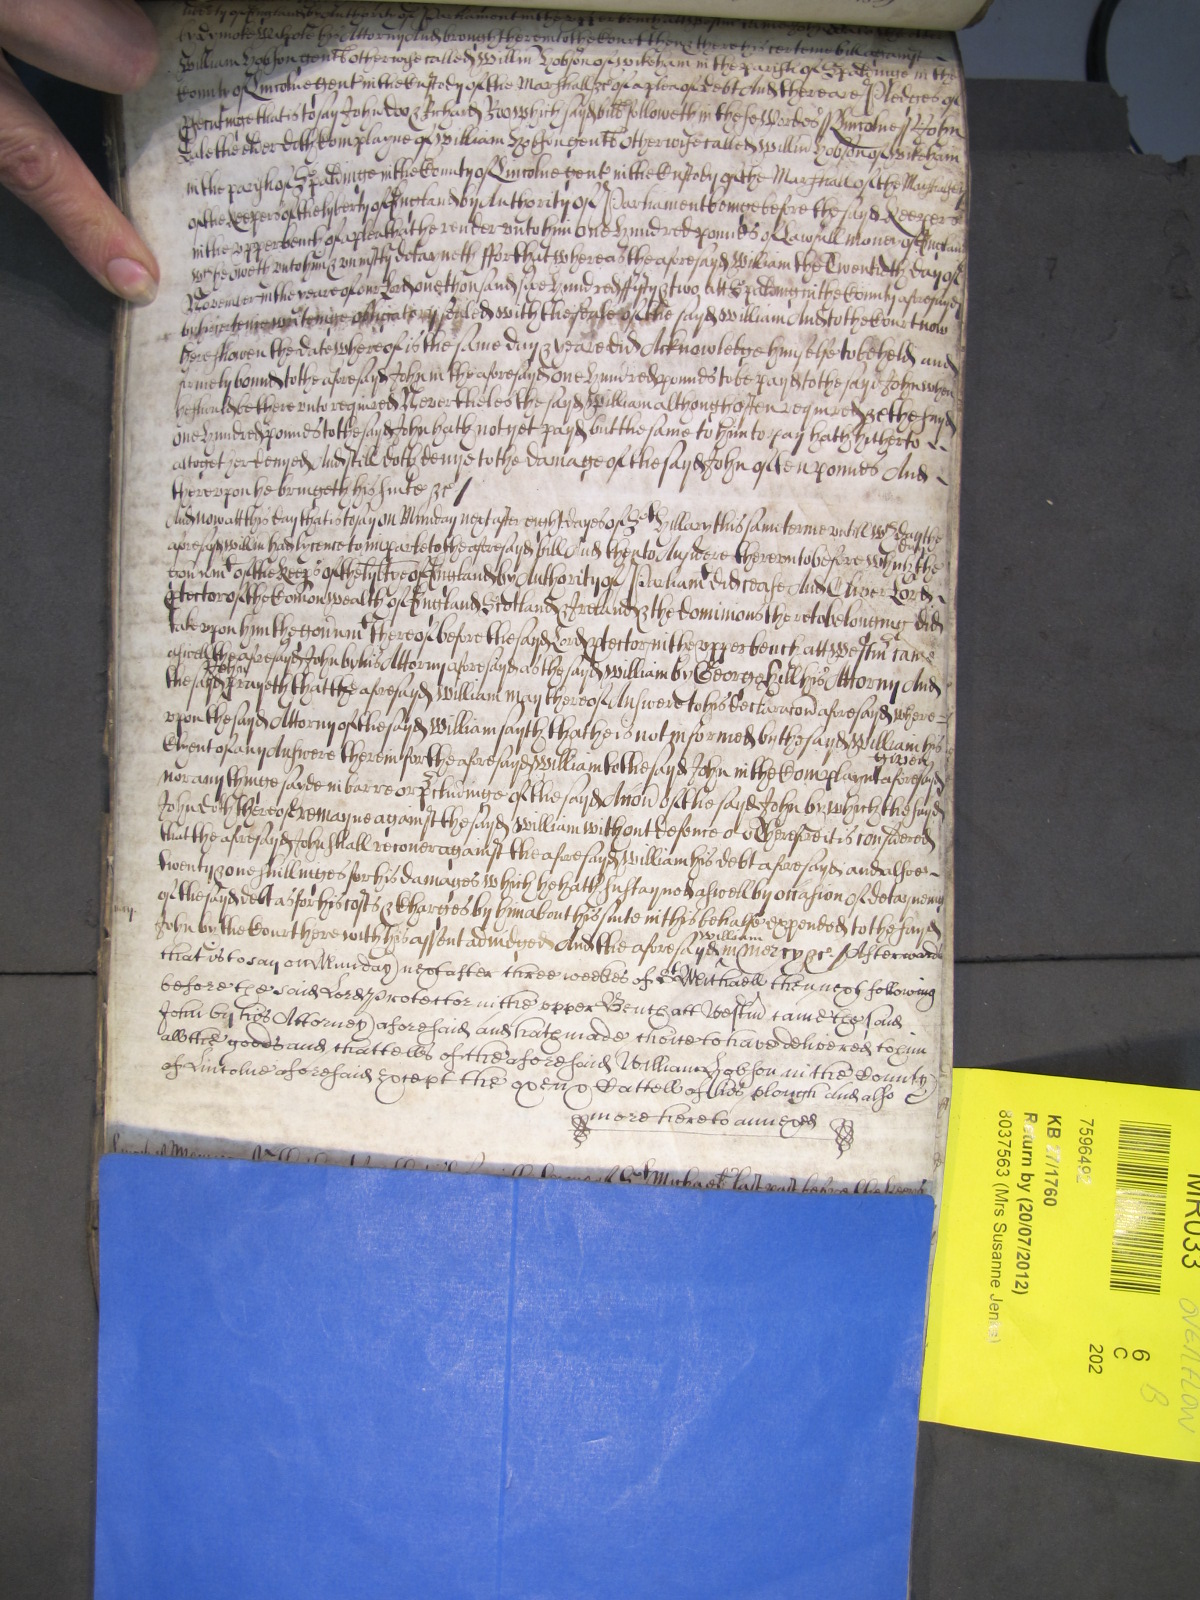 liberty of England by Authority of Parliament in the upper bench att Westm came John
by Attorny And brought heere into the Court then & there his certeine bill against
William Hobson gent otherwise called Willm Hobson of Wikeham in the parish of Spaldinge in the
County of Lincolne gent in the custody of the Marshall &c of a plea of Debt And there are Pledges of
psecutinge that is to say John Doo & Richard Roo which sayd bill followeth in these Wordes // Lincolne // John
the elder doth complayne of William Hobson gent Otherwise called Willm Hobson of Wikeham
in the parish of Spaldinge in the County of Lincolne gent in the Custody of the Marshall of the Marshalsey
of the Keepers of the lyberty of England by Authority of Parliament beinge before the sayd Keepers
in the upper bench of a plea that he render unto him one hundred pounds of Lawfull money of England
wch he oweth unto him & uniustly detayneth ffor that whereas the aforesayd William the Twentieth day of
November in the yeare of our Lord one thousand six hundred ffifty & two att Spaldinge in the County aforesayd
by his certeine writeinge obligatory sealed with the seale of the sayd William And to the Court now
here showen the date whereof is the same day & yeare did Acknowledge himselfe to be held and
firmely bound to the aforesayd John in the aforesayd one hundred pounds to be payd to the sayd John when
he should be thereunto required Nevertheles the sayd William although often required &c the sayd
one hundred pounds to the sayd John hath not yet payd but the same to him to pay hath hitherto
altogether denyed And still doth denye to the damage of the sayd John of ten pounds And
thereupon he bringeth his suite &c /
And now att this day that is to say on Munday next after eight dayes of St Hillary this same terme until wch day the
aforesayd Willm had lycence to imparle to the aforesayd bill And then to Answere thereunto before which day the
gouernmt of the Keeps of the lybtye of England by Authority of Parliamt did cease And Oliver Lord
Ptector of the Comon Wealth of England Scotland & Ireland & the dominions thereto belonging did
take upon him the gouernmt thereof before the sayd Lord ptector in the upper bench att Westm came
aswell the aforesayd John by his Attorny aforesayd as the sayd William by George Hill his Attorny And
the sayd John prayeth that the aforesayd William may thereof Answere to his declaracon aforesayd where
upon the sayd Attorny of the sayd William sayth that he is not informed by the sayd William his
Clyent of any Answere therein for the aforesayd William to the sayd John in the Complaynt aforesayd given
nor any thinge sayde in barre or pcludinge of the sayd Accion of the sayd John by which the sayd
John doth thereof remayne against the sayd William without defence &c Therefore it is considered
that the aforesayd John shall recouer against the aforesayd William his debt aforesayd and allsoe
twenty & one shillinges for his damages which he hath sustayned aswell by occasion of detayneing
of the sayd debt as for his costs & Charges by him about his suite in this behalfe expended to the sayd
John by the Court here with his assent adiudged And the aforesayd William in Mercy &c / Afterward
that is to say on Munday next after three weekes of St Michaell then next following
before the said Lord Protector in the upper Bench att Westm came the said
John by his Attorney aforesaid and hath made choice to have delivered to him
all the goods and chattells of the aforesaid William Hobson in the County
of Lincolne aforesaid Except the oxen & Cattell of his plough And also
more hereto annexed
St Michael last past before the keeps
MR033
OVERFLOW
B
6
C
202
7596492
KB 27/1760
Return by (20/07/2012)
8037563 (Mrs Susanne Jen